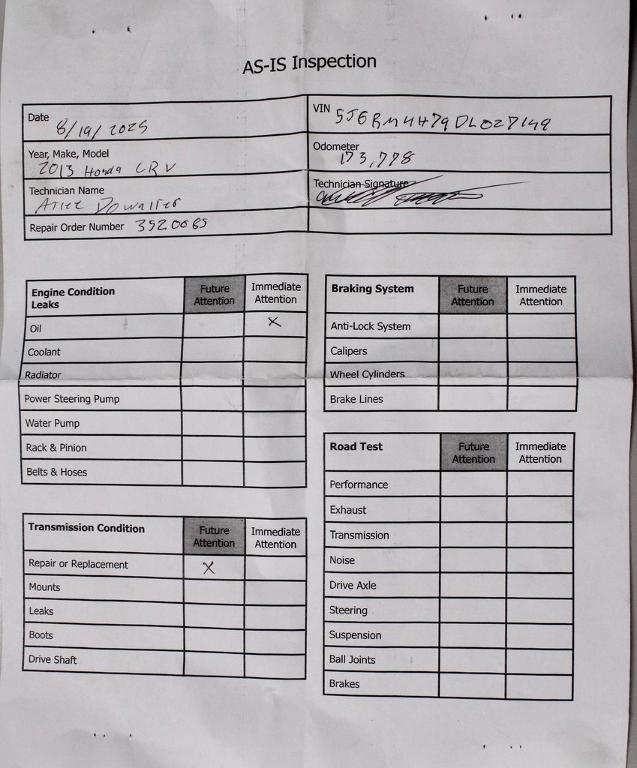 AS-IS Inspection
Date 8/19/2025
VIN 5J6RM4H79DL027149
Year, Make, Model 2013 Honda CRV
Odometer 173,778
Technician Name
Technician Signature
Repair Order Number 3520085
Engine Condition Leaks Future Attention Immediate Attention
Oil X
Coolant
Radiator
Power Steering Pump
Water Pump
Rack & Pinion
Belts & Hoses
Transmission Condition Future Attention Immediate Attention
Repair or Replacement X
Mounts
Leaks
Boots
Drive Shaft
Braking System Future Attention Immediate Attention
Anti-Lock System
Calipers
Wheel Cylinders
Brake Lines
Road Test Future Attention Immediate Attention
Performance
Exhaust
Transmission
Noise
Drive Axle
Steering
Suspension
Ball Joints
Brakes